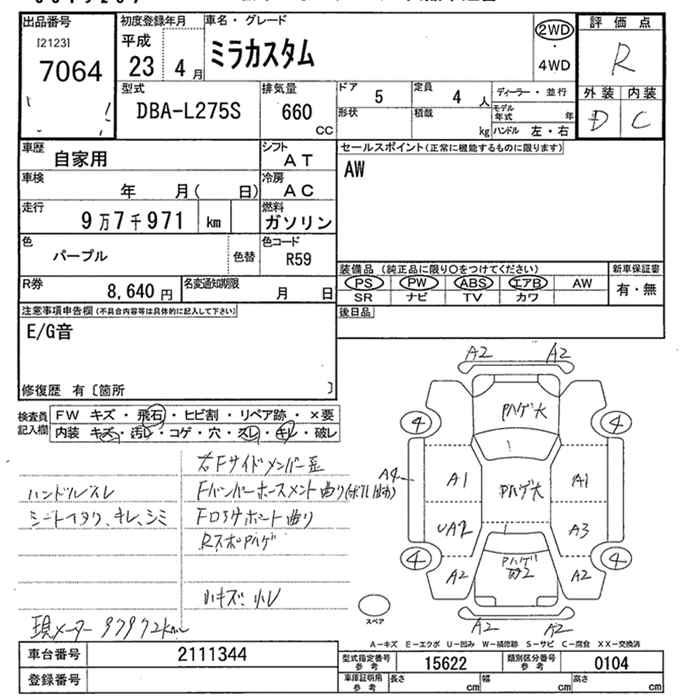 出品番号
[2123]
7064
初度登録年月
平成
23年4月
車名・グレード
ミラカスタム
2WD
・
4WD
評価点
R
外装 内装
D C
型式
DBA-L275S
排気量
660
CC
ドア
5
定員
4人
形状
積哉
kg
ディーラー・並行
モデル年式 年
ハンドル 左・右
車歴
自家用
シフト
AT
車検
年 月( 日)
冷房
AC
走行
9万7千971 km
燃料
ガソリン
色
パープル
色替
色コード
R59
R券
8,640円
名変通知期限
月 日
セールスポイント(正常に機能するものに限ります)
AW
装備品(純正品に限り○をつけてください)
PS PW ABS エアB AW
SR ナビ TV カワ
新車保証書
有・無
後日品
注意事項申告欄(不具合内容等は具体的に記入して下さい)
E/G音
修復歴 有〔箇所 〕
検査員記入欄
FW キズ・飛石・ヒビ割・リペア跡・×要
内装 キズ・汚レ・コゲ・穴・スレ・キレ・破レ
右Fサイドメンバー歪
ハンドルスレ
Fバンパーホースメント曲り
シートヘタリ、キレ、シミ
Fロアサポート曲り
Rスポハゲ
小キズ、小レ
現メーター 97972km
A2 A2
Pハゲ大
4 4
A4 A1 Pハゲ大 A1
UA2 A3
4 4
A2 Pハゲ A2
A2 A2
スペア
A-キズ E-エクボ U-凹み W-補修跡 S-サビ C-腐食 XX-交換済
車台番号 2111344
登録番号
型式指定番号 参考 15622
類別区分番号 参考 0104
車庫証明用 参考 長さ cm 幅 cm 高さ cm